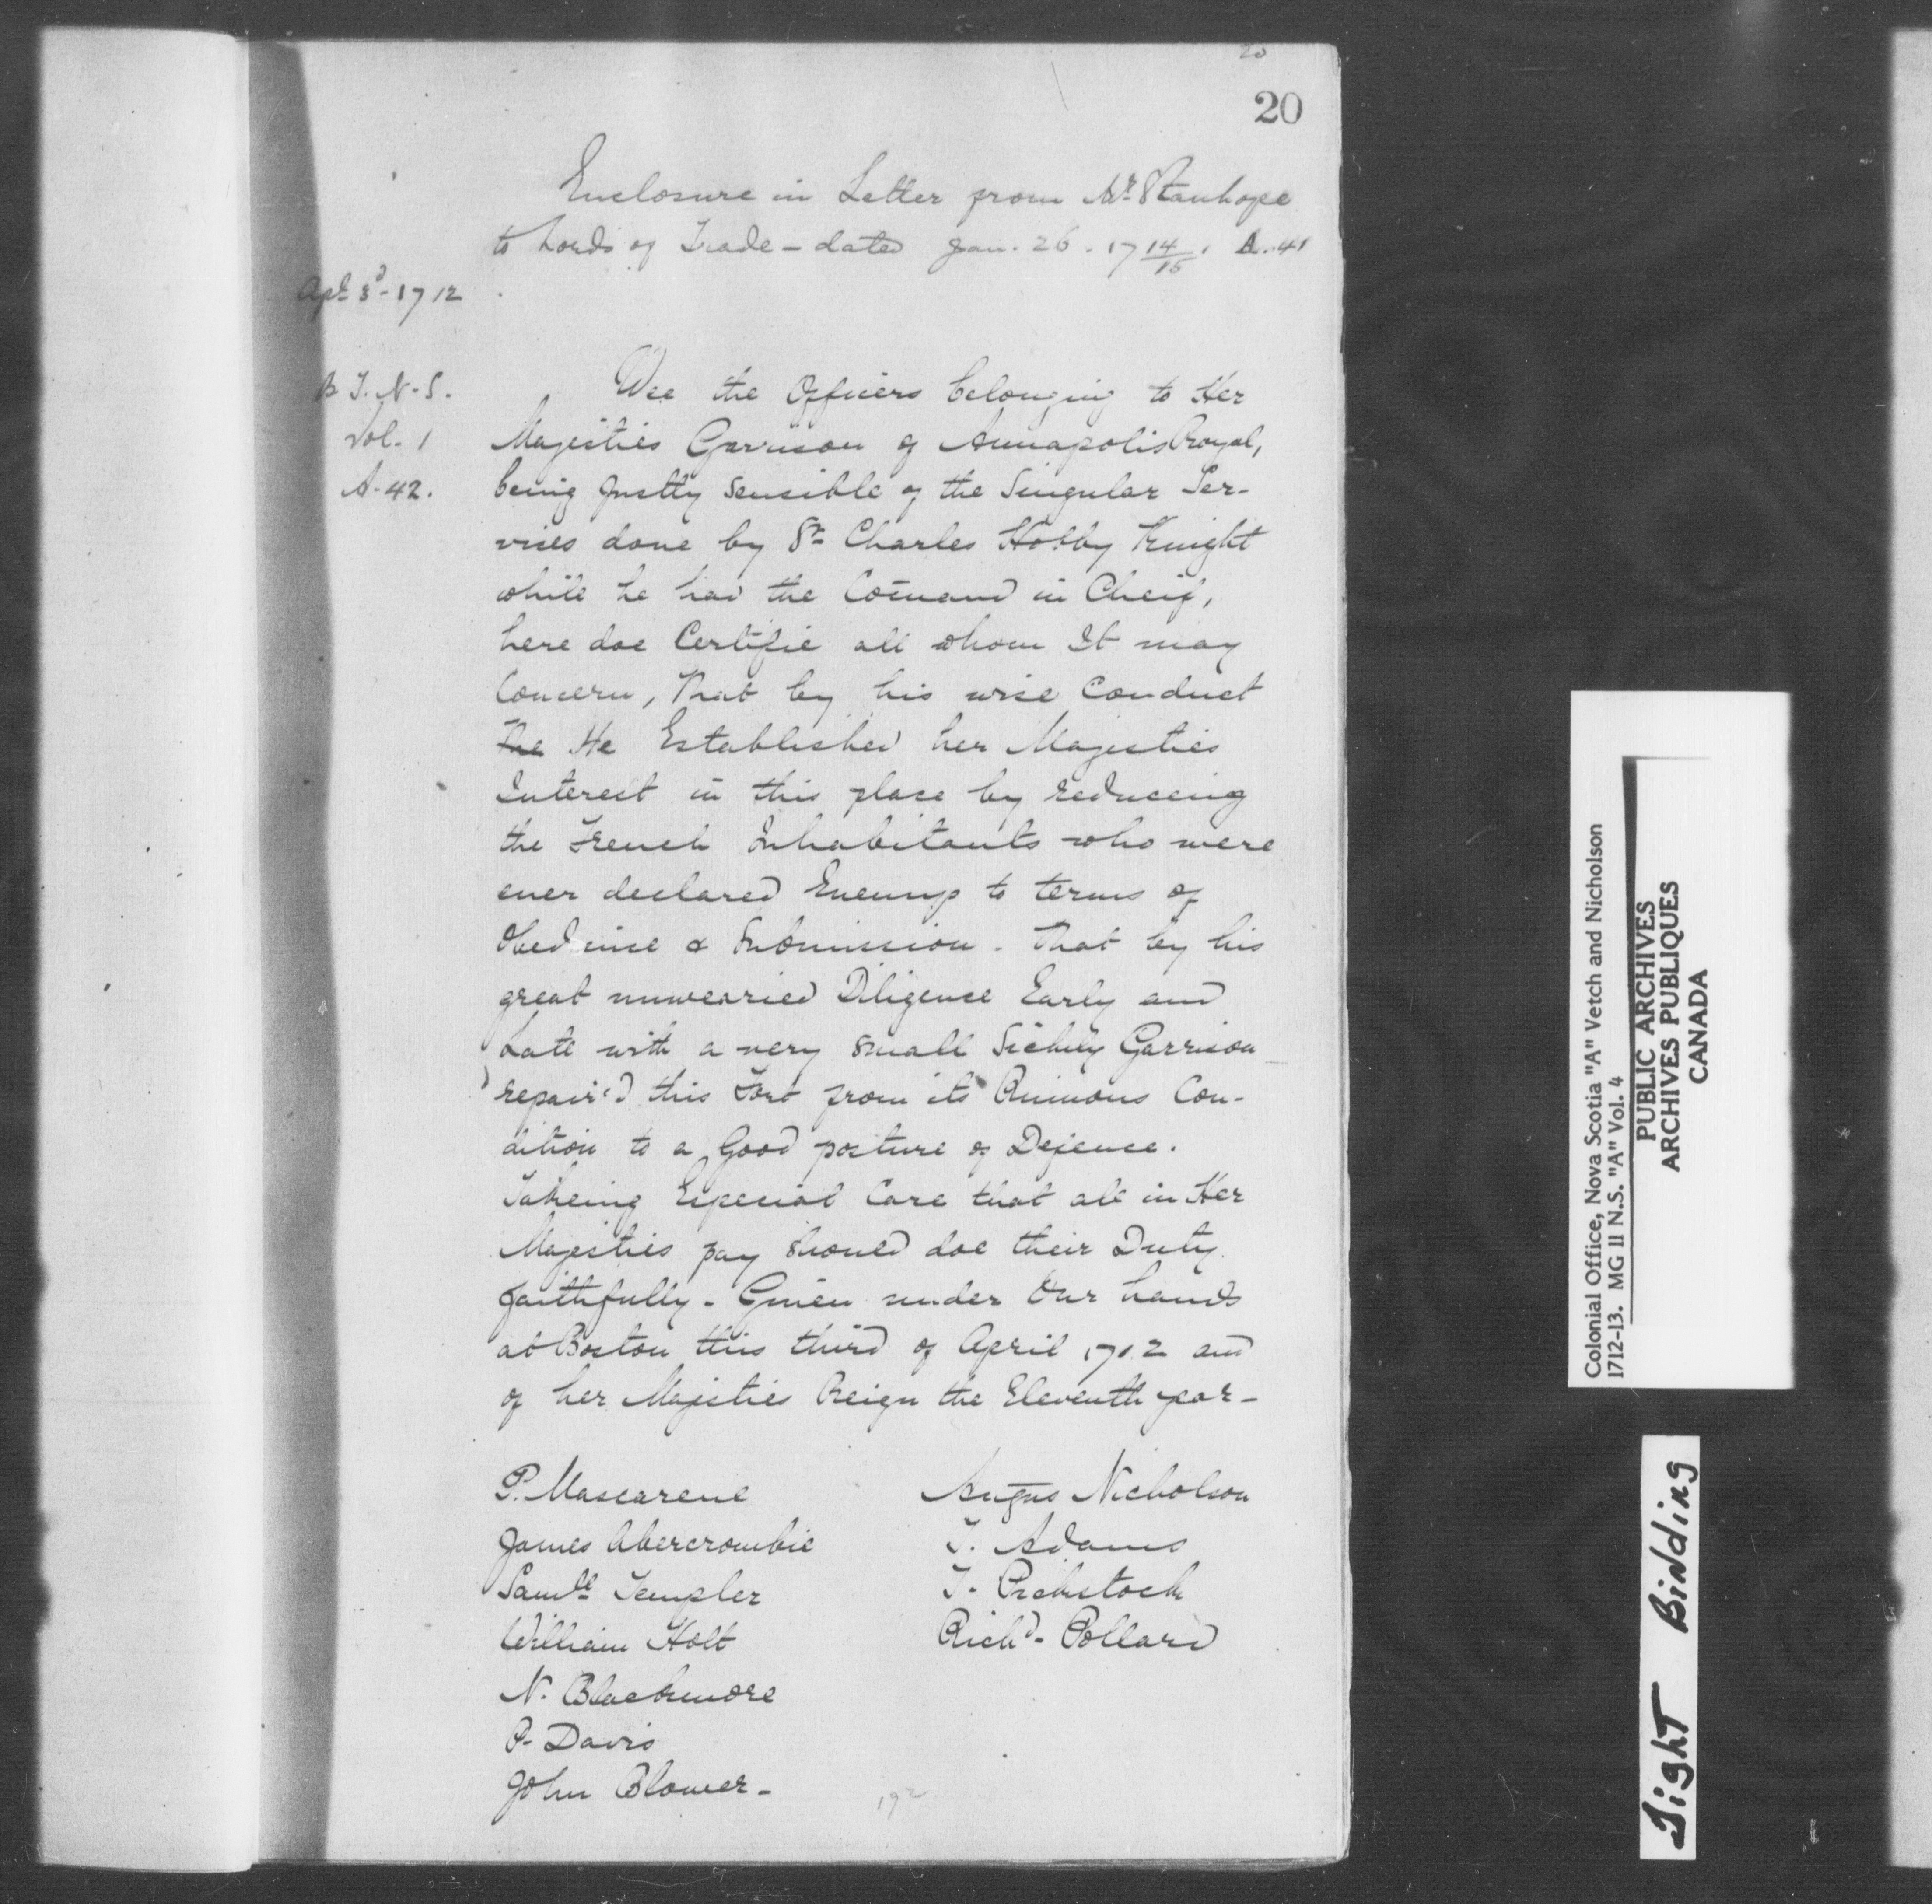 20
20
Enclosure in Letter from Mr. Stanhope
to Lords of Trade - dated Jan. 26. 17 14/15. A. 41
Apl 3d - 1712
B. T. N-S.
Vol. 1
A-42.
Wee the Officers belonging to Her
Majesties Garrison of Annapolis Royal,
being justly sensible of the Singular Ser-
vices done by Sr Charles Hobby Knight
while he had the Com̄and in Cheif,
here doe Certifie all whom It may
Concern, That by his wise Conduct
The He Established her Majesties
Interest in this place by reduceing
the French Inhabitants who were
ever declared Enemys to terms of
Obedience & Submission - That by his
great unwearied Diligence Early and
Late with a very small Sickly Garrison
repair'd this Fort from its Ruinous Con-
dition to a Good posture of Defence.
Takeing Especial Care that all in Her
Majesties pay should doe their Duty
faithfully - Given under Our hands
at Boston this third of April 1712 and
of her Majesties Reign the Eleventh year -
P. Mascarene
James Abercrombie
Samll Templer
William Holt
N. Blackmore
P. Davis
John Blower -
Angus Nicholson
T. Adams
Richd - Pollard
192
Colonial Office, Nova Scotia "A" Vetch and Nicholson
1712-13. MG 11 N.S. "A" Vol. 4
PUBLIC ARCHIVES
ARCHIVES PUBLIQUES
CANADA
Tight Binding